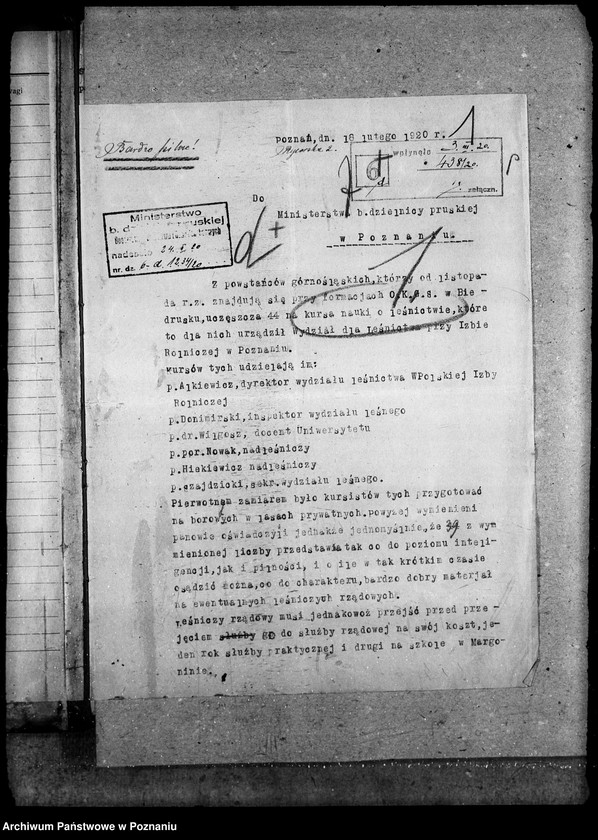 Bardzo pilne!
Poznań,dn. 16 lutego 1920 r.
wpłynęło 3. III. 20.
438/20.
załączn.
Do
Ministerstwa b.dzielnicy pruskiej
w Poznaniu
Ministerstwo
b. dzielnicy pruskiej
nadeszło 24. II. 20
nr. dz.
Z powstańców górnośląskich,którzy od listopa-
da r.z. znajdują się przy formacjach O.K.G.S. w Bie-
drusku,uczęszcza 44 na kursa nauki o leśnictwie,które
to dla nich urządził Wydział dla Leśnictwa przy Izbie
Rolniczej w Poznaniu.
Kursów tych udzielają im:
p.Alkiewicz,dyrektor wydziału leśnictwa WPolskiej Izby
Rolniczej
p.Donimirski,inspektor wydziału leśnego
p.dr.Wilgosz, docent Uniwersytetu
p.por.Nowak,nadleśniczy
p.Hiekiewicz nadleśniczy
p.Czajdzicki,sekr.wydziału leśnego.
Pierwotnem zamiarem było kursistów tych przygotować
na borowych w lasach prywatnych.powyżej wymienieni
panowie oświadczyli jednakże jednomyślnie,że 39 z wym
mienionej liczby przedstawia tak co do poziomu inteli-
gencji,jak i pilności, i o ile w tak krótkim czasie
osądzić można,co do charakteru,bardzo dobry materjał
na ewentualnych leśniczych rządowych.
Leśniczy rządowy musi jednakowoż przejść przed prze-
jęciem służby go do służby rządowej na swój koszt,je-
den rok służby praktycznej i drugi na szkole w Margo-
ninie.
Archiwum Państwowe w Poznaniu